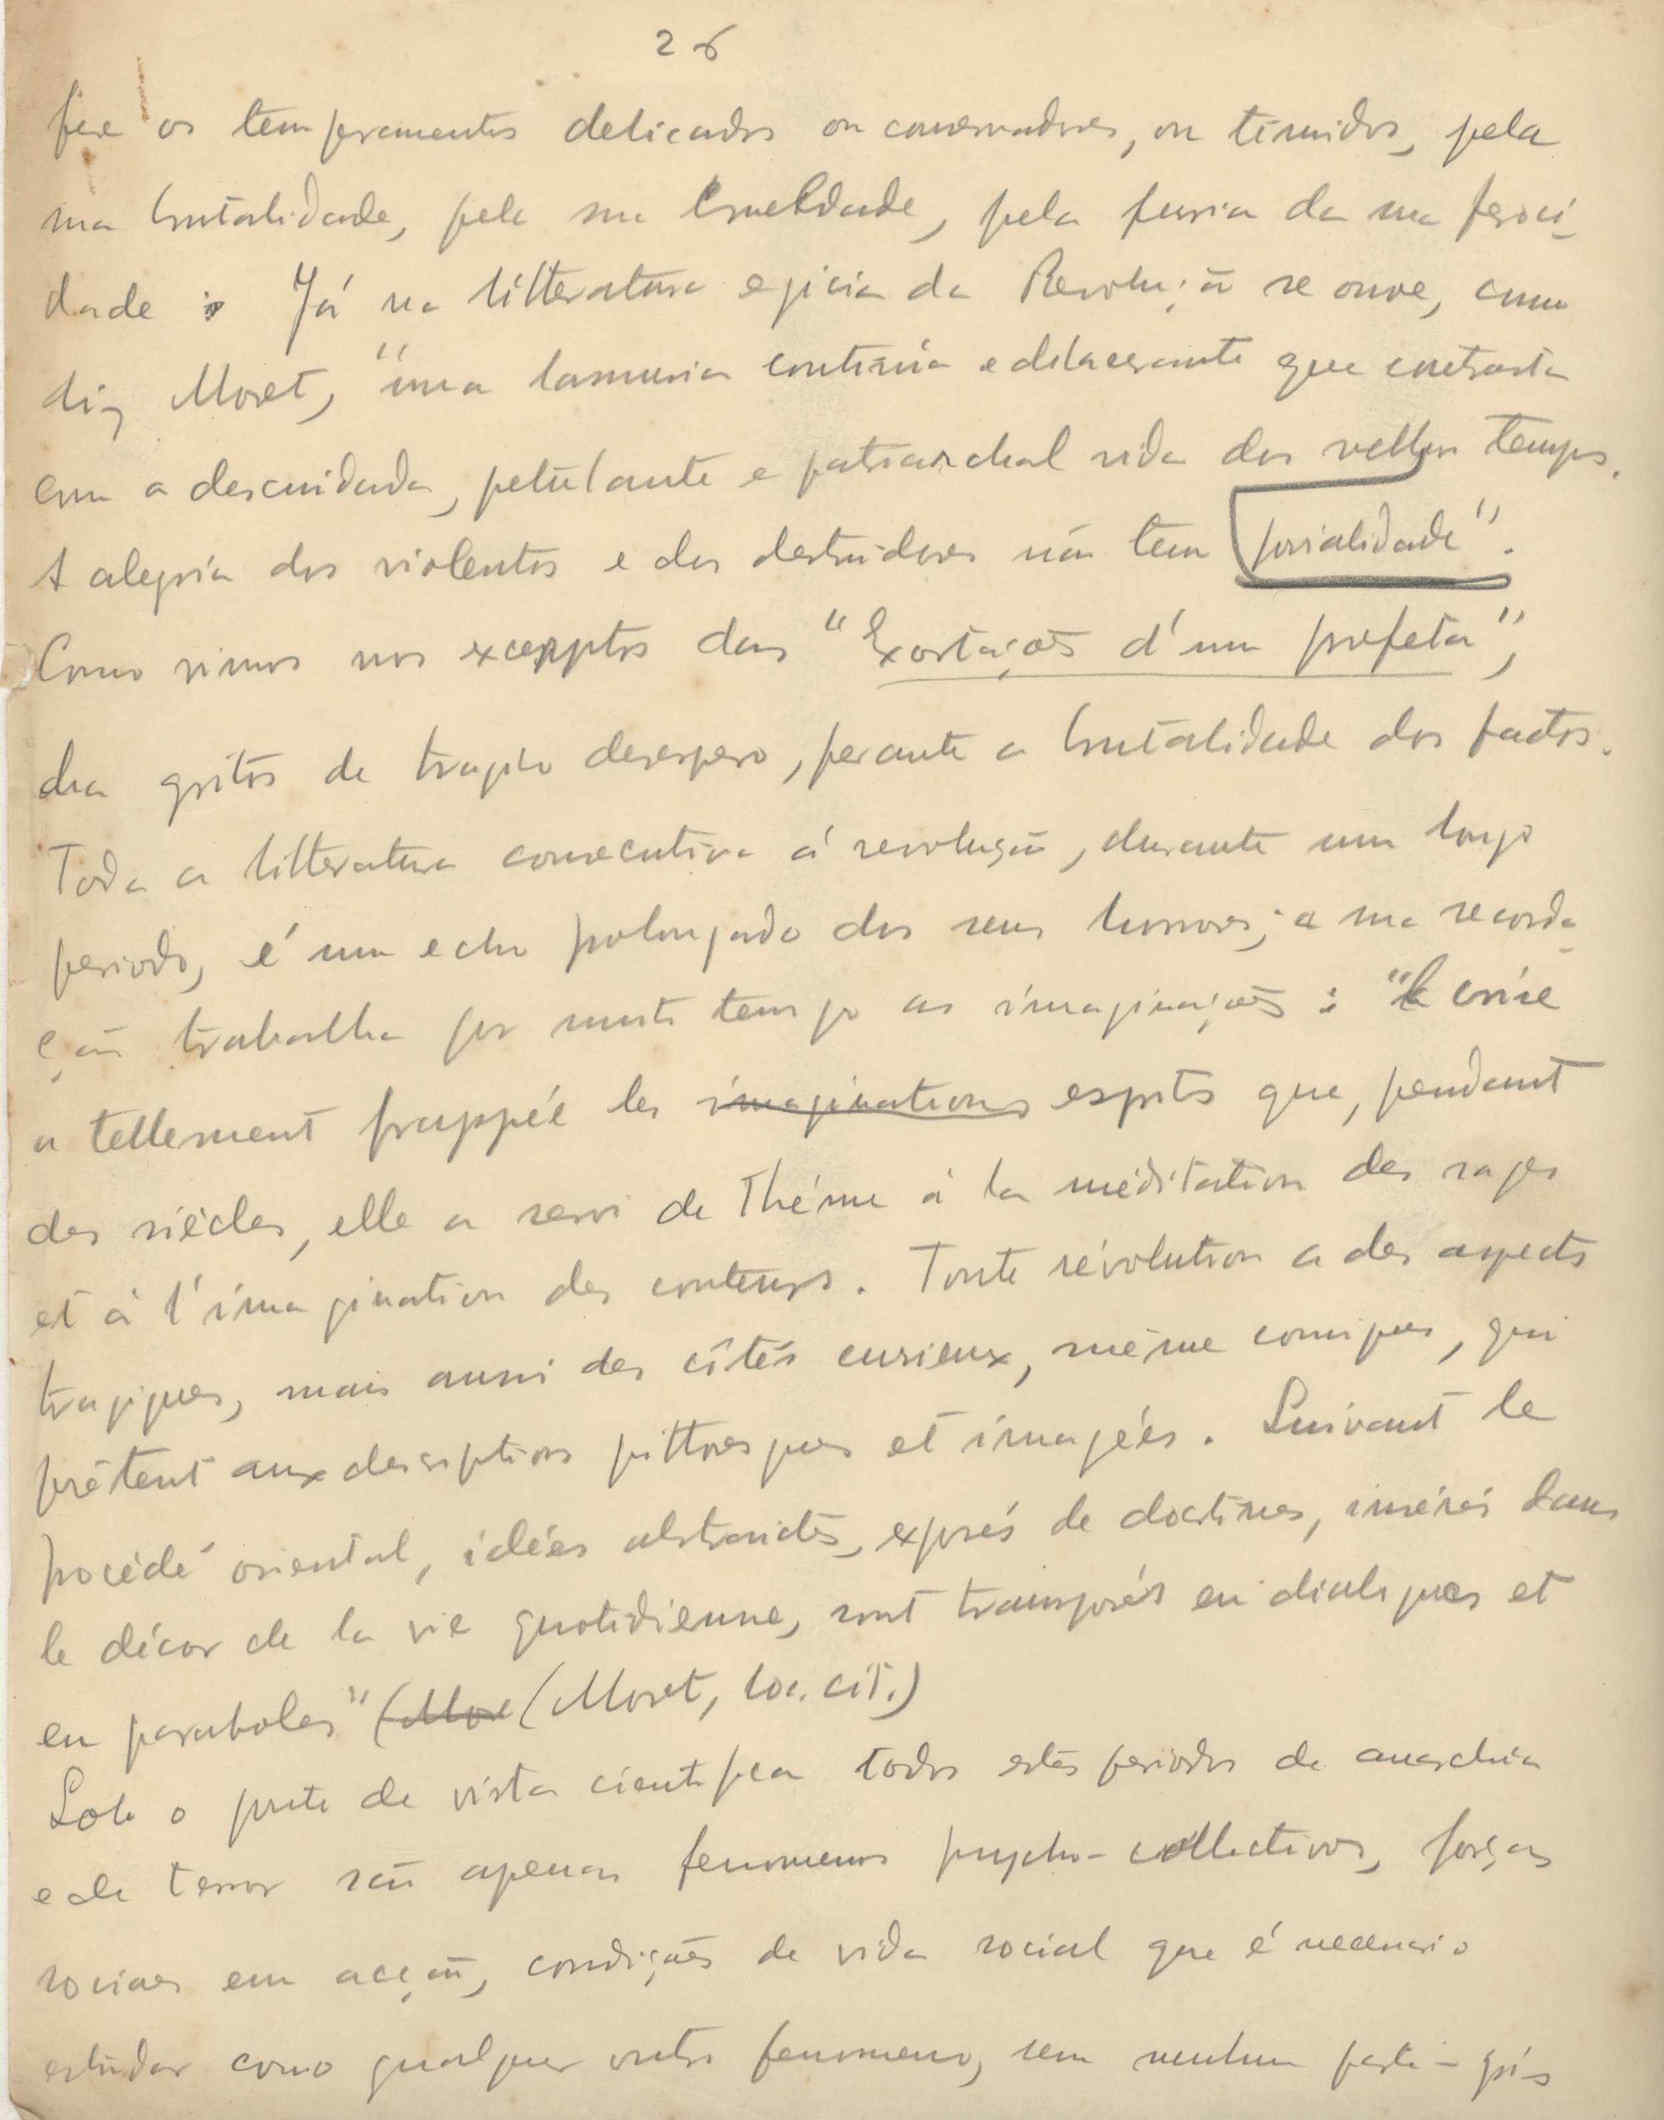 26
fere os temperamentos delicados ou conservadores, ou timidos, pela
sua brutalidade, pela sua crueldade, pela furia da sua feroci-
dade. Já na litteratura egicia da Revolução se ouve, como
diz Moret, "uma lamuria continúa e dilacerante que contrasta
com a descuidada, petulante e patriarchal vida dos velhos tempos.
A alegria dos violentos e dos destruidores não tem jovialidade".
Como vimos nos excerptos das "Exortações d'um profeta",
dha gritos de tragico desespero, perante a brutalidade dos factos.
Toda a litteratura consecutiva á revolução, durante um longo
periodo, é um echo prolongado dos seus horrores; a sua recorda-
ção trabalha por muito tempo as imaginações: "La crise
a tellement frappée les imaginations esprits que, pendant
des siècles, elle a servi de Théme à la méditation des sages
et à l'imagination des conteurs. Toute révolution a des aspects
tragiques, mais aussi des côtés curieux, même comiques, qui
prêtent aux descriptions pittoresques et imagées. Suivant le
procédé oriental, idées abstraites, exposés de doctrines, insérés dans
le décor de la vie quotidienne, sont transposés en dialogues et
en paraboles" (More (Moret, loc. cit.)
Sob o ponto de vista cientifico todos estes periodos de anarchia
e de terror são apenas fenomenos psycho-collectivos, forças
sociaes em acção, condições de vida social que é necessario
estudar como qualquer outro fenomeno, sem nenhum parti-pris